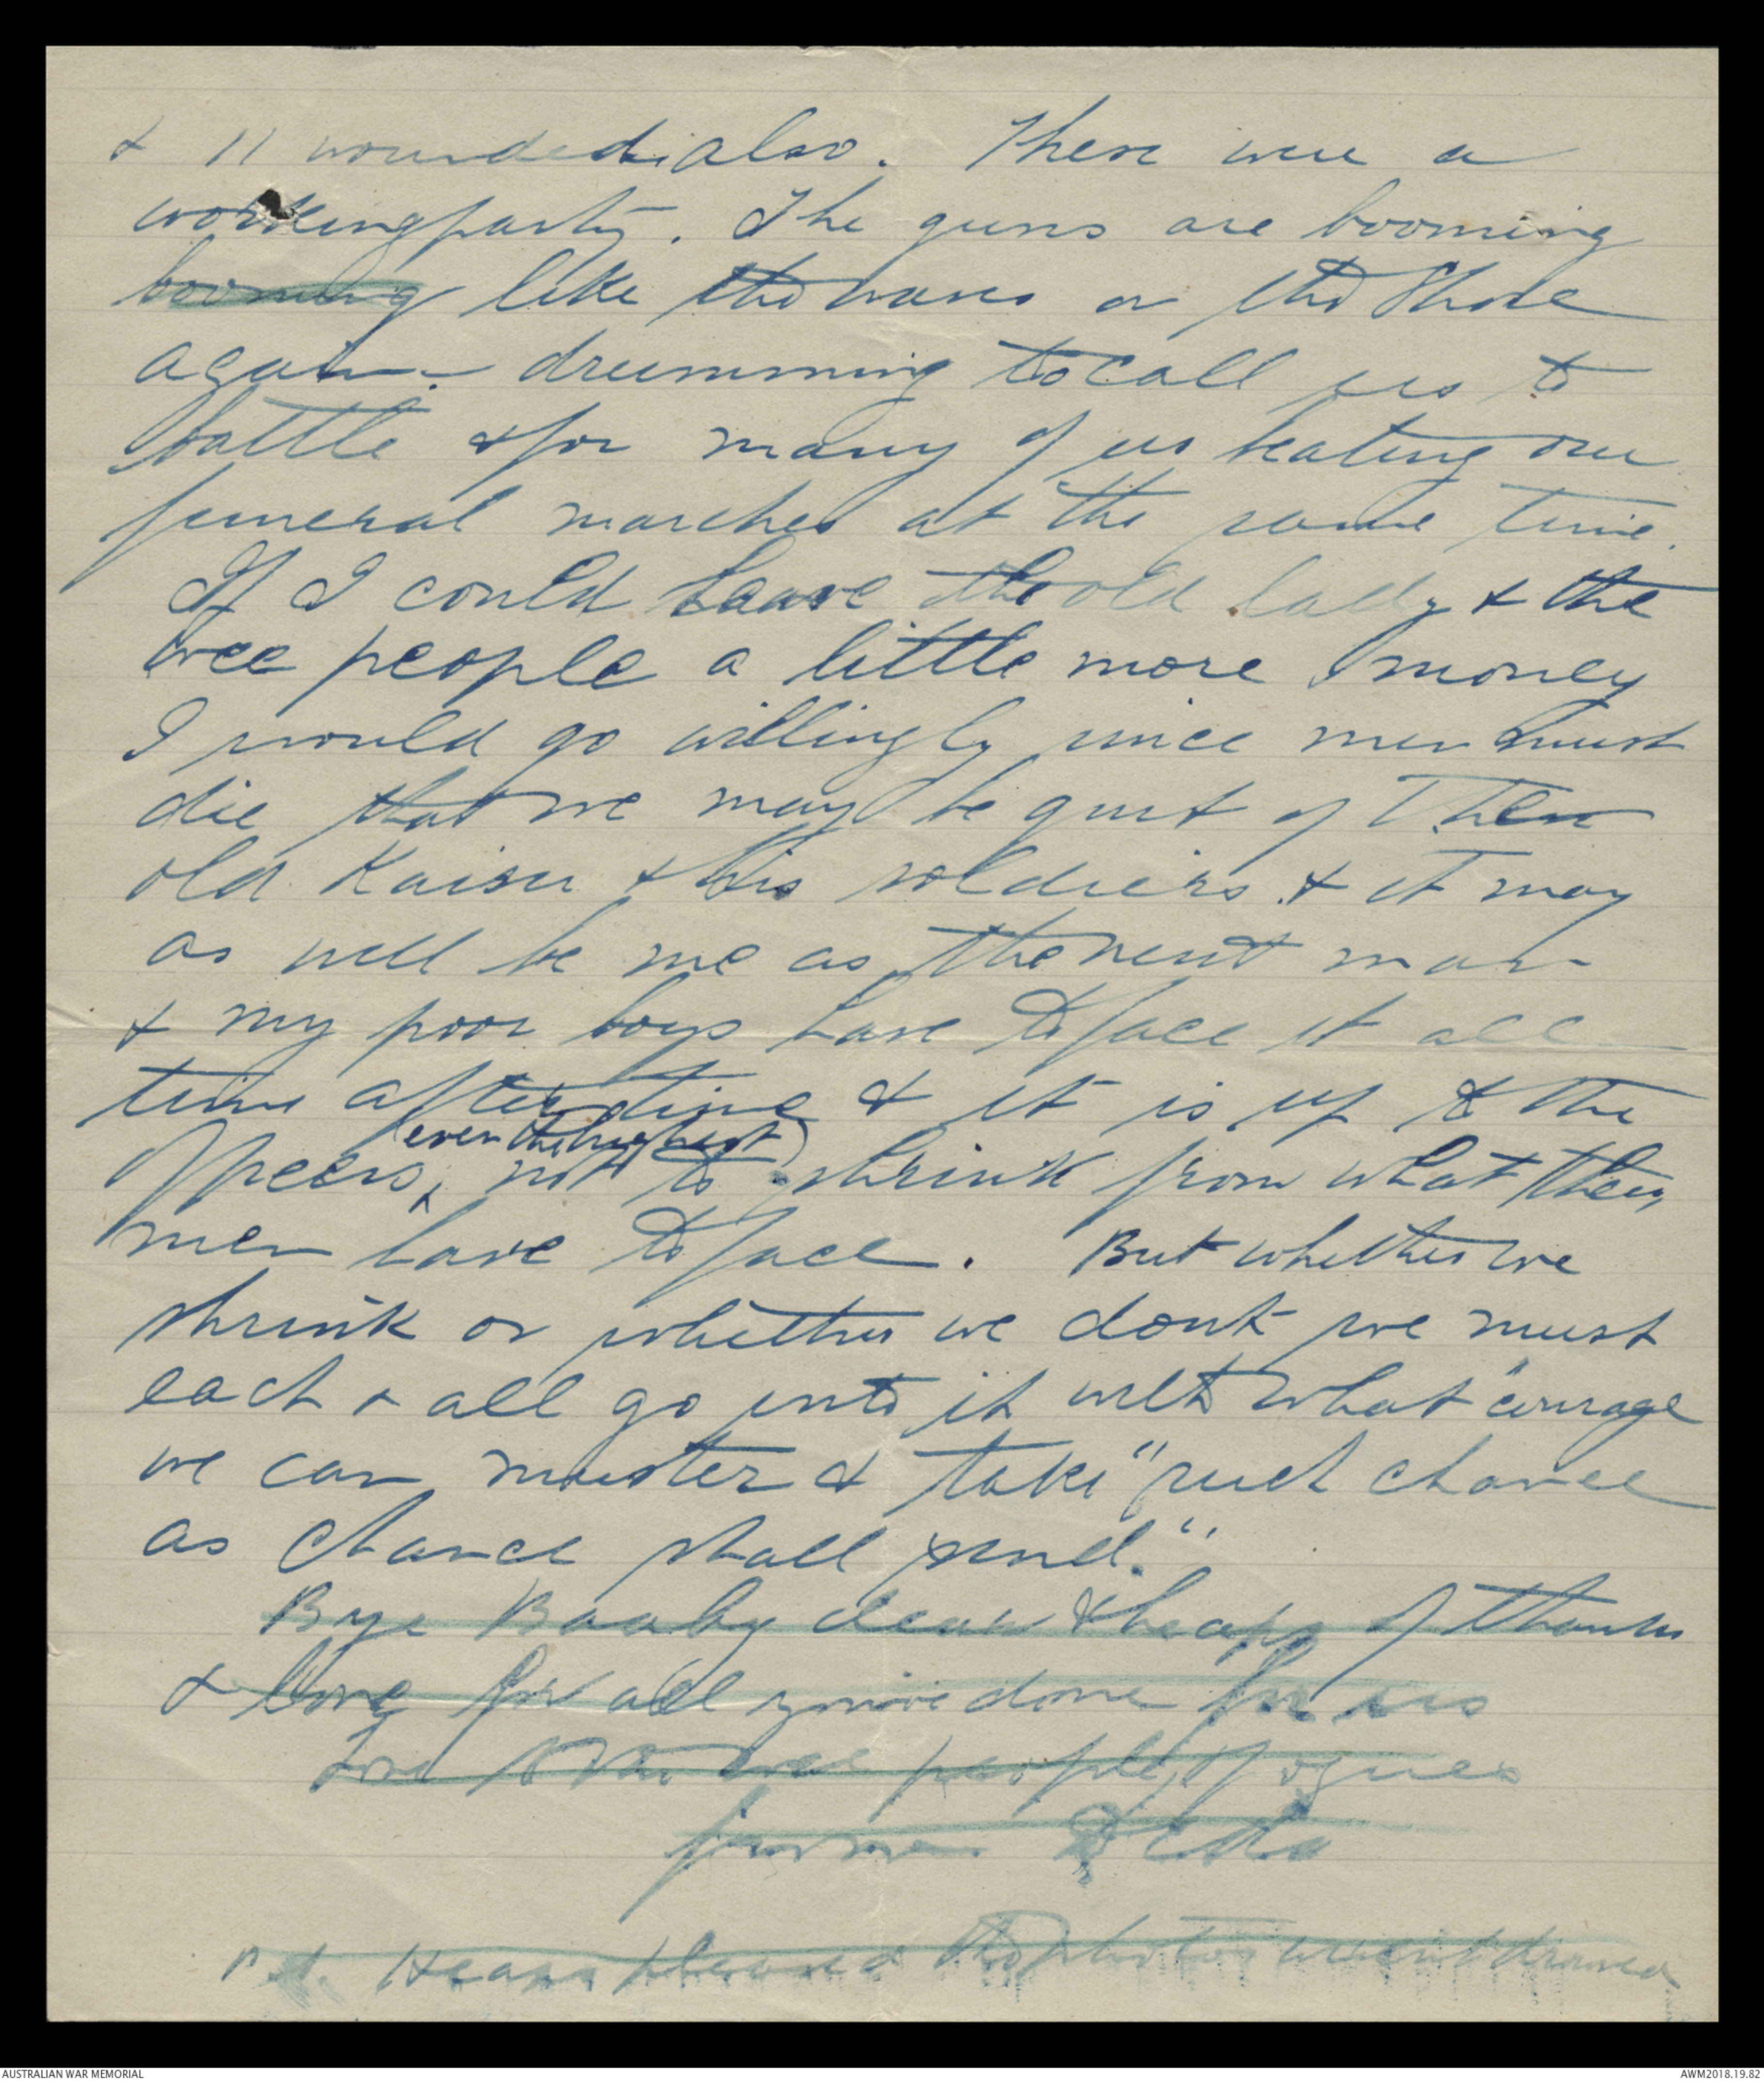 & 11 wounded also. There were a
working party. The guns are booming
booming like the waves on the shore
again drumming to call us to
battle & for many of us beating our
funeral marches at the same time.
If I could leave the old lady & the
wee people a little more money
I would go willingly since men must
die that we may be quit of
old Kaiser & his soldiers & it may
as well be me as the next man
& my poor boys have to face it all
time after time & it is up to the
(even the highest)
officers, not to shrink from what they
men have to face. But whether we
shrink or whether we dont we must
each & all go into it with what "courage
we can muster & take "such chance
as chance shall send."
Bye Baaby dear & heaps of thanks
& love for all youve done for us
Love to the wee people of ogues
from Dida
P.S. Heaps pleased the photos werent drowned.
AUSTRALIAN WAR MEMORIAL
AWM2018.19.82